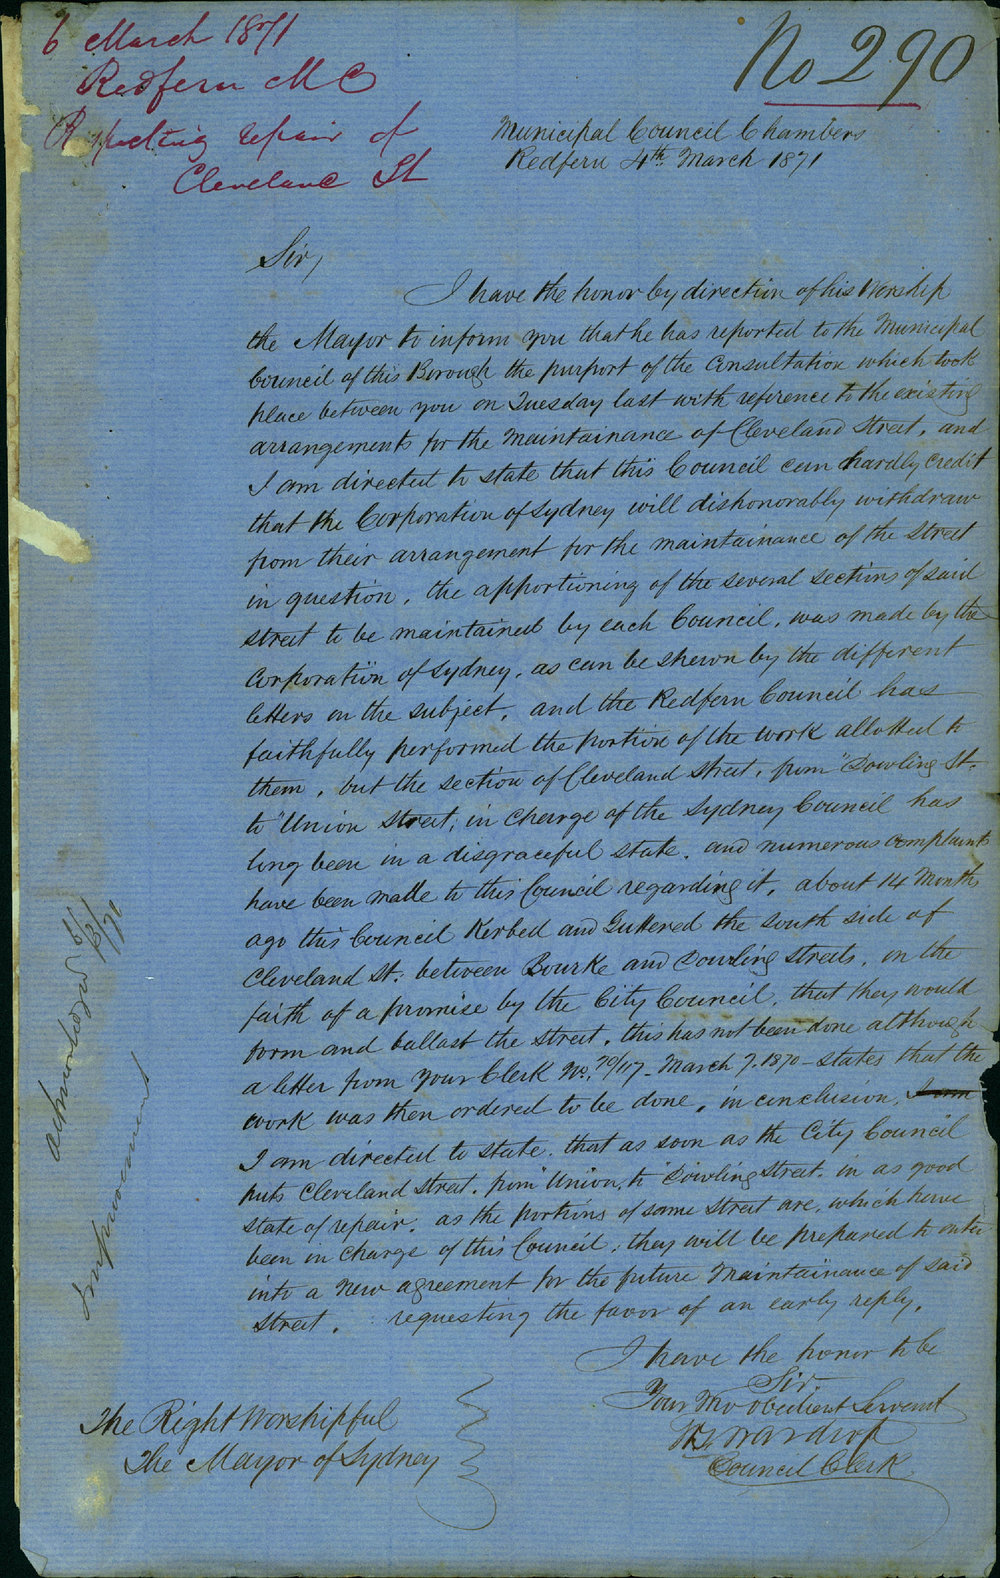 6 March 1871
Redfern M C
Respecting repair of
Cleveland St
No 290
Municipal Council Chambers
Redfern 4th March 1871
Sir,
I have the honor by direction of his Worship
the Mayor to inform you that he has reported to the Municipal
Council of this Borough the purport of the Consultation which took
place between you on Tuesday last with reference to the existing
arrangements for the Maintainance of Cleveland Street, and
I am directed to state that this Council can hardly credit
that the Corporation of Sydney will dishonorably withdraw
from their arrangement for the maintainance of the Street
in question, the apportioning of the several sections of said
street to be maintained by each Council, was made by the
Corporation of Sydney, as can be shewn by the different
letters on the subject, and the Redfern Council has
faithfully performed the portion of the work allotted to
them, but the section of Cleveland Street, from "Dowling St.
to "Union Street, in charge of the Sydney Council has
long been in a disgraceful state, and numerous complaints
have been made to this Council regarding it, about 14 Months
ago this Council Kerbed and Guttered the south side of
Cleveland St: between Bourke and Dowling Streets, on the
faith of a promise by the City Council, that they would
form and ballast the street, this has not been done although
a letter from your Clerk No. 70/117 - March 7. 1870 - states that the
work was then ordered to be done, in conclusion, I am
I am directed to state, that as soon as the City Council
puts Cleveland Street, from "Union, to "Dowling Street, in as good
state of repair, as the portions of same street are, which have
been in charge of this Council, they will be prepared to enter
into a new agreement for the future Maintainance of said
street. requesting the favor of an early reply.
I have the honor to be
Sir,
Your Mo obedient Servant
Wardrop
Council Clerk
The Right Worshipful
The Mayor of Sydney
acknowledged 6/3/71
Improvement